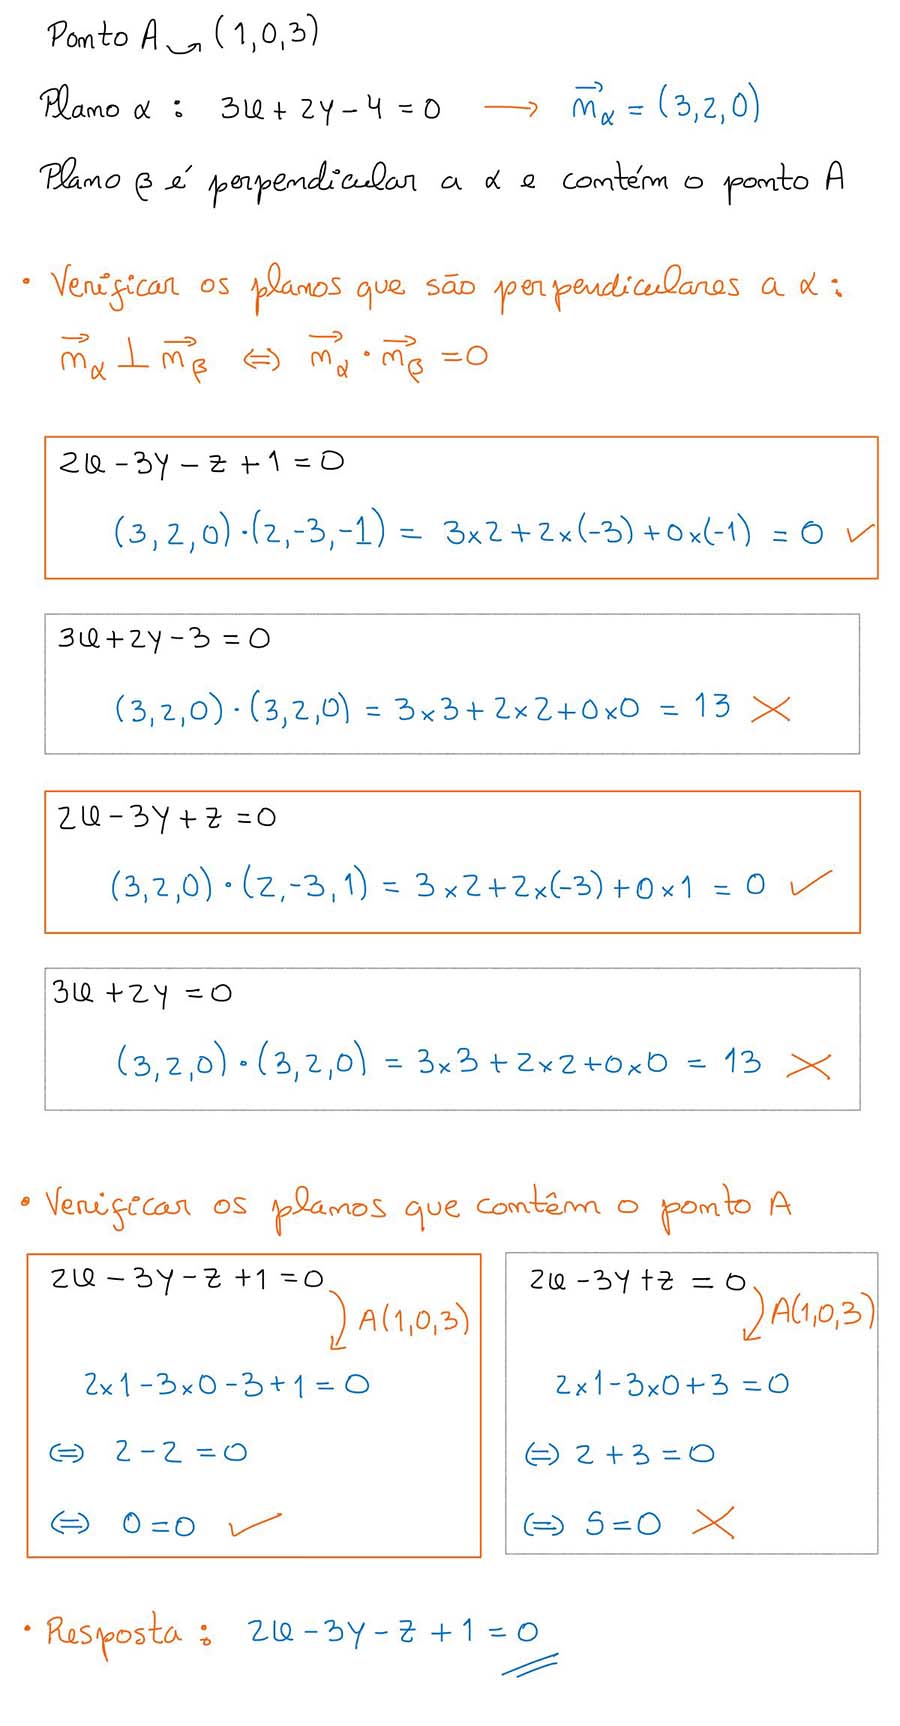 Ponto A → (1,0,3)
Plano α : 3x + 2y - 4 = 0 → n⃗α = (3,2,0)
Plano β é perpendicular a α e contém o ponto A
• Verificar os planos que são perpendiculares a α :
n⃗α ⊥ n⃗β ⇔ n⃗α · n⃗β = 0
2x - 3y - z + 1 = 0
(3,2,0)·(2,-3,-1) = 3×2+2×(-3)+0×(-1) = 0 ✓
3x+2y-3 = 0
(3,2,0)·(3,2,0) = 3×3+2×2+0×0 = 13 ✗
2x-3y+z = 0
(3,2,0)·(2,-3,1) = 3×2+2×(-3)+0×1 = 0 ✓
3x+2y = 0
(3,2,0)·(3,2,0) = 3×3+2×2+0×0 = 13 ✗
• Verificar os planos que contêm o ponto A
2x-3y-z+1=0
A(1,0,3)
2×1-3×0-3+1=0
⇔ 2-2=0
⇔ 0=0 ✓
2x-3y+z = 0
A(1,0,3)
2×1-3×0+3=0
⇔ 2+3=0
⇔ 5=0 ✗
• Resposta : 2x-3y-z+1=0